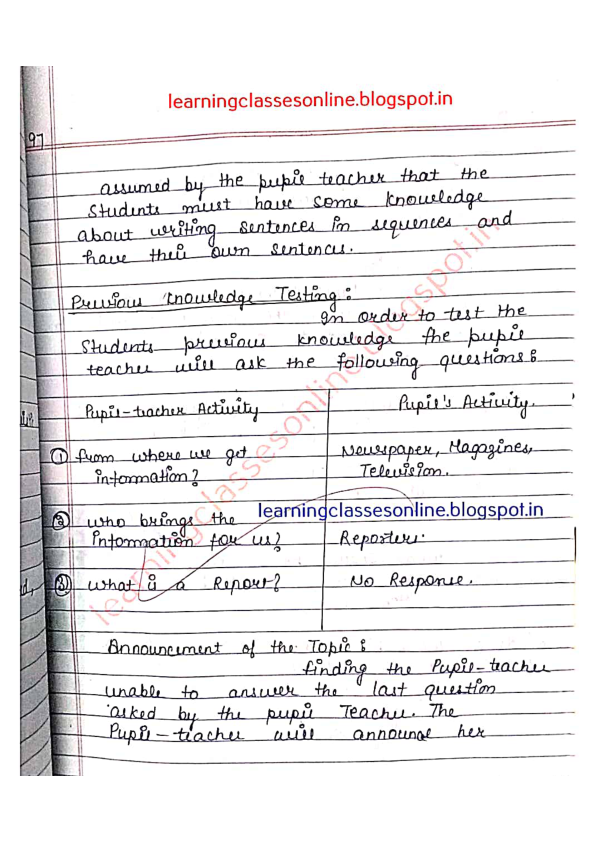 learningclassesonline.blogspot.in
97
assumed by the pupil teacher that the
Students must have some knowledge
about writing sentences in sequences and
have their own sentences.
Previous Knowledge Testing:
In order to test the
Students previous knowledge the pupil
teacher will ask the following questions:
Pupil-teacher Activity
Pupil's Activity.
① from where we get
information?
Newspaper, Magazines,
Television.
learningclassesonline.blogspot.in
② who brings the
Information for us?
Reporters.
③ what is a Report?
No Response.
learningclassesonline.blogspot.in
Announcement of the Topic:
finding the Pupil-teacher
unable to answer the last question
asked by the pupil Teacher. The
Pupil-teacher will announce her